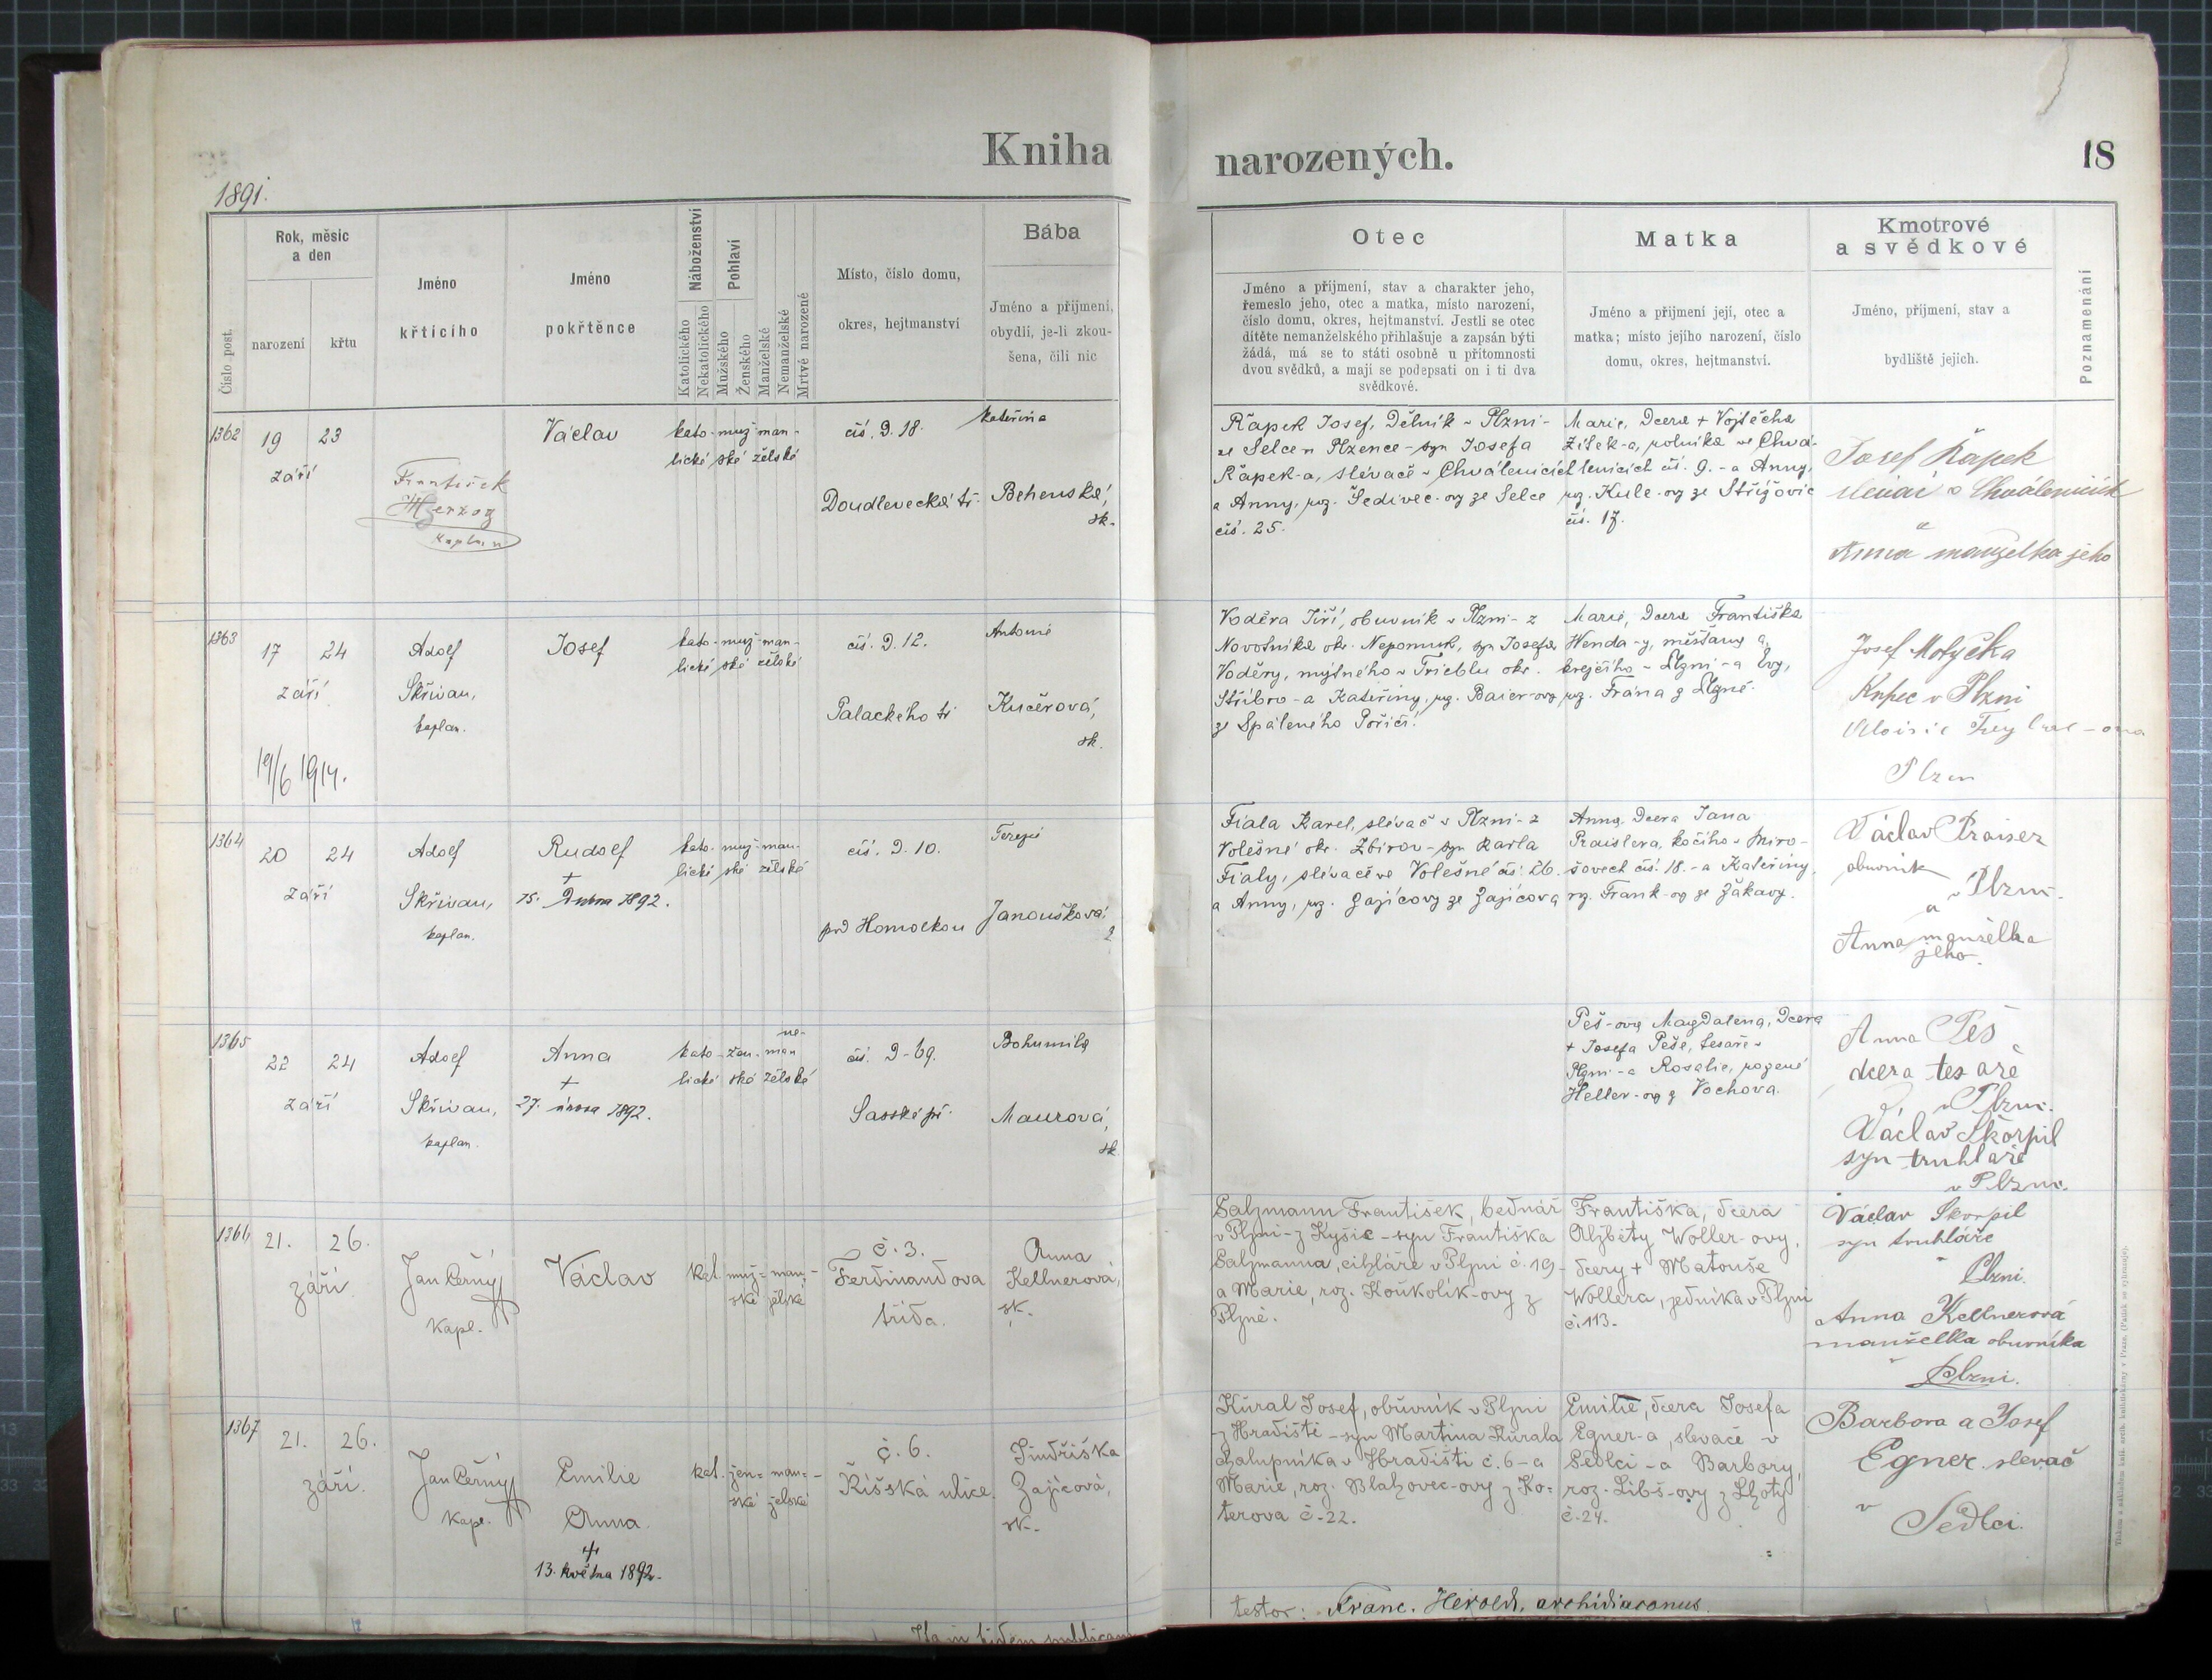 Kniha
narozených.
18
1891.
Číslo post.
Rok, měsíc
a den
narození
křtu
Jméno
křtícího
Jméno
pokřtěnce
Náboženství
Katolického
Nekatolického
Pohlaví
Mužského
Ženského
Manželské
Nemanželské
Mrtvě narozené
Místo, číslo domu,
okres, hejtmanství
Bába
Jméno a příjmení,
obydlí, je-li zkou-
šena, čili nic
Otec
Jméno a příjmení, stav a charakter jeho,
řemeslo jeho, otec a matka, místo narození,
číslo domu, okres, hejtmanství. Jestli se otec
dítěte nemanželského přihlašuje a zapsán býti
žádá, má se to státi osobně u přítomnosti
dvou svědků, a mají se podepsati on i ti dva
svědkové.
Matka
Jméno a příjmení její, otec a
matka; místo jejího narození, číslo
domu, okres, hejtmanství.
Kmotrové
a svědkové
Jméno, příjmení, stav a
bydliště jejich.
Poznamenání
1362
19
23
září
František
Herzog
kaplan
Václav
kato- muž- man-
lické ské želské
čís. D. 18.
Doudlevecká tř.
Kateřina
Behenská,
zk.
Řápek Josef, dělník v Plzni -
ze Selce n Plzence - syn Josefa
Řápek-a, slévače v Chválenicích
a Anny, roz. Šedivec-ovy ze Selce
čís. 25.
Marie, dcera + Vojtěcha
Žišek-a, rolníka ve Chvá-
lenicích čís. 9. - a Anny,
roz. Kule-ovy ze Střížovic
čís. 17.
Josef Řápek
slévač v Chválenicích
a
Anna manželka jeho
1363
17
24
září
19/6 1914.
Adolf
Skřivan,
kaplan.
Josef
kato- muž- man-
lické ské želské
čís. D. 12.
Palackého tř
Antonie
Kučerová,
zk.
Voděra Jiří, obuvník v Plzni - z
Novotníka okr. Nepomuk, syn Josefa
Voděry, mýtného v Trieblu okr.
Stříbro - a Kateřiny, roz. Baier-ovy
z Spáleného Poříčí.
Marie, dcera Františka
Wenda-y, měšťana a
krejčího v Plzni - a Evy,
roz. Frána z Plzně.
Josef Motyčka
Kupec v Plzni
Aloisie
Plzen
1364
20
24
září
Adolf
Skřivan,
kaplan.
Rudolf
+
15. Dubna 1892.
kato- muž- man-
lické ské želské
čís. D. 10.
pod Homolkou
Terezie
Janoušková,
z
Fiala Karel, slévač v Plzni - z
Volešné okr. Zbirov - syn Karla
Fialy, slévače ve Volešné čís. 26.
a Anny, roz. Zajícovy ze Zajícova
Anna, dcera Jana
Praislera, kočího v Miro-
šovech čís. 18. - a Kateřiny,
roz. Frank-ovy ze Žákavy.
Václav Praiser
obuvník
v Plzni.
a
Anna manželka
jeho.
1365
22
24
září
Adolf
Skřivan,
kaplan.
Anna
+
27. února 1892.
ne-
kato- žen- man
lické ské želské
čís. D. 69.
Sasské př.
Bohumila
Maurová,
zk.
Peš-ova Magdalena, dcera
+ Josefa Peše, tesaře v
Plzni - a Rosalie, rozené
Heller-ovy z Vochova.
Anna Peš
dcera tesaře
v Plzni.
Václav Škorpil
syn truhlaře
v Plzni.
1366
21.
26.
září
Jan Černý
Kapl.
Václav
kat. muž= man=
ské želské
č. 3.
Ferdinandova
třída.
Anna
Kellnerová,
zk.
Salzmann František, bednář
v Plzni - z Kyšic - syn Františka
Salzmanna, cihláře v Plzni č. 19 -
a Marie, roz. Koukolík-ovy z
Plzně.
Františka, dcera
Alžběty Woller-ovy,
dcery + Matouše
Wollera, zedníka v Plzni
č. 113.
Václav Škorpil
syn truhláře
Plzni.
Anna Kellnerová
manželka obuvníka
v Plzni.
1367
21.
26.
září.
Jan Černý
Kapl.
Emilie
Anna.
+
13. května 1892.
kat. žen= man=
ské želské
č. 6.
Říšská ulice.
Jindřiška
Zajícová,
zk.
Kůral Josef, obuvník v Plzni
z Hradiště - syn Martina Kůrala
chalupníka v Hradišti č. 6 - a
Marie, roz. Blahovec-ovy z Ko=
terova č. 22.
Emilie, dcera Josefa
Egner-a, slevače v
Sedlci - a Barbory,
roz. Libš-ovy z Lhoty
č. 24.
Barbora a Josef
Egner slevač
v
Sedlci.
testor: Franc. Herold, archidiaconus.